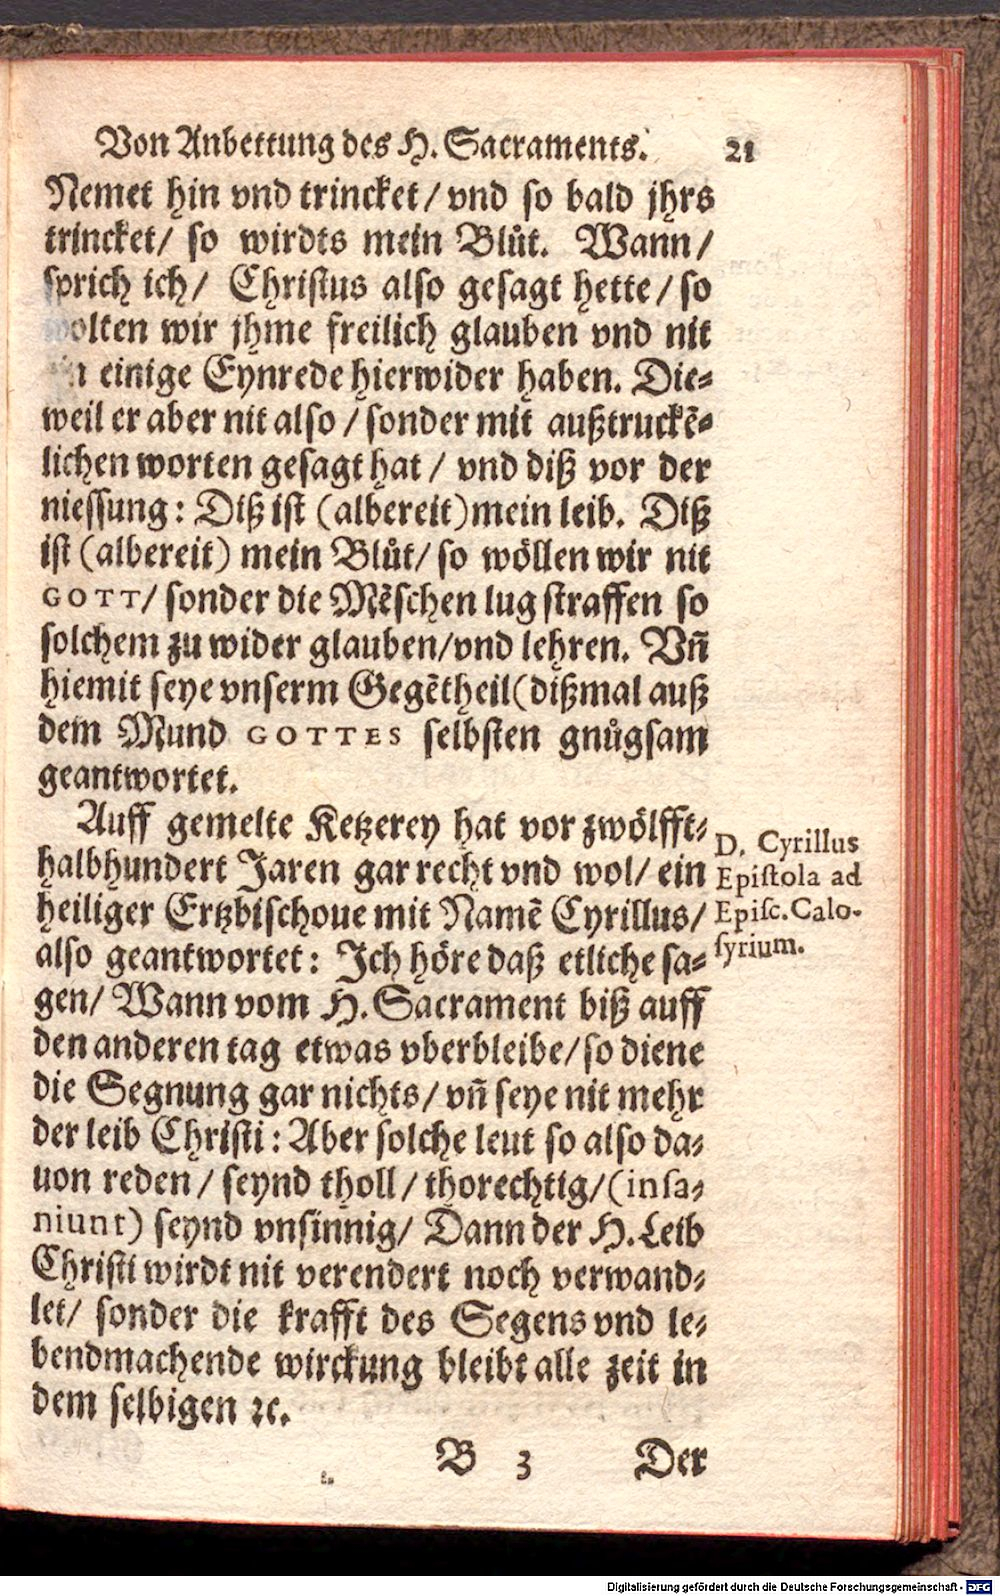 Von Anbettung des H. Sacraments. 21
Nemet hin vnd trincket / vnd so bald jhrs
trincket / so wirdts mein Blůt. Wann /
sprich ich / Christus also gesagt hette / so
wolten wir jhme freilich glauben vnd nit
einige Eynrede hierwider haben. Die-
weil er aber nit also / sonder mit außtruckē-
lichen worten gesagt hat / vnd diß vor der
niessung: Diß ist (albereit) mein leib. Diß
ist (albereit) mein Blůt / so wöllen wir nit
GOTT / sonder die Mēschen lug straffen so
solchem zu wider glauben / vnd lehren. Vñ
hiemit seye vnserm Gegētheil (dißmal auß
dem Mund GOTTES selbsten gnůgsam
geantwortet.
Auff gemelte Ketzerey hat vor zwölfft-
halbhundert Jaren gar recht vnd wol / ein
heiliger Ertzbischoue mit Namē Cyrillus /
also geantwortet: Ich höre daß etliche sa-
gen / Wann vom H. Sacrament biß auff
den anderen tag etwas vberbleibe / so diene
die Segnung gar nichts / vñ seye nit mehr
der leib Christi: Aber solche leut so also da-
uon reden / seynd tholl / thorechtig / (insa-
niunt) seynd vnsinnig / Dann der H. Leib
Christi wirdt nit verendert noch verwand-
let / sonder die krafft des Segens vnd le-
bendmachende wirckung bleibt alle zeit in
dem selbigen ꝛc.
D. Cyrillus
Epistola ad
Episc. Calo-
syrium.
B 3 Der
Digitalisierung gefördert durch die Deutsche Forschungsgemeinschaft - DFG